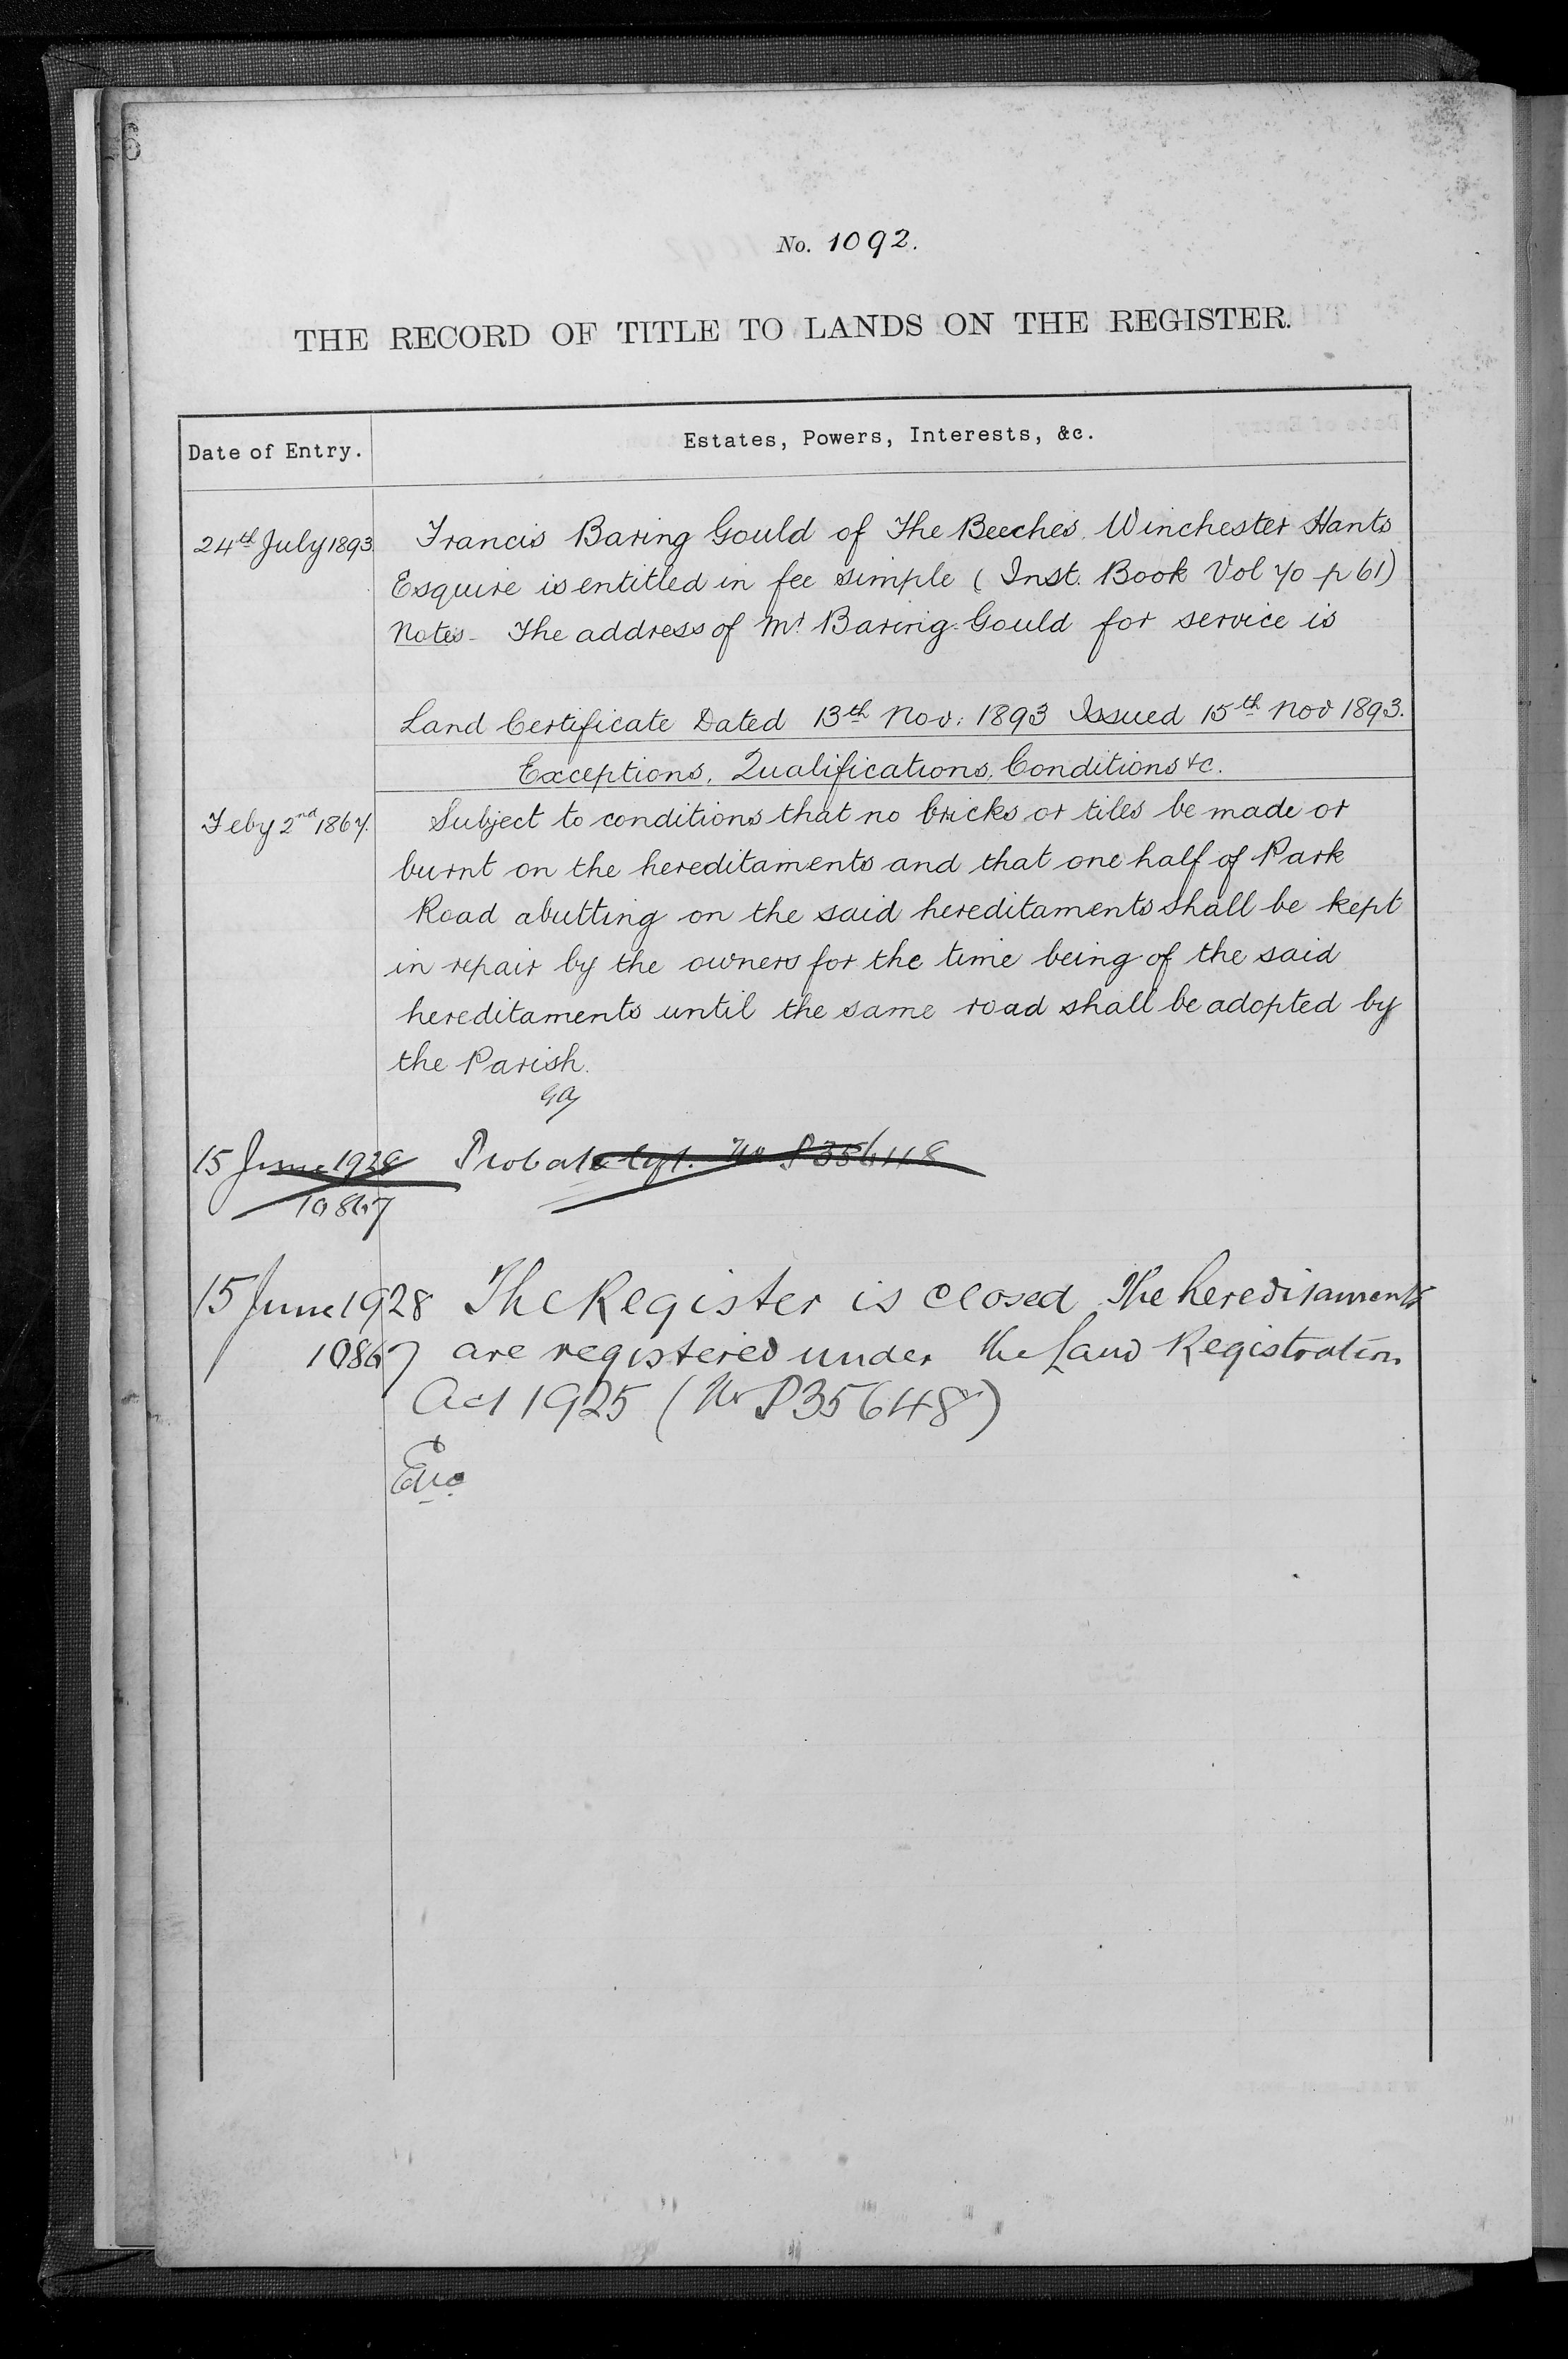 6
No. 1092.
THE RECORD OF TITLE TO LANDS ON THE REGISTER.
Date of Entry.
Estates, Powers, Interests, &c.
24th July 1893. Francis Baring Gould of The Beeches, Winchester Hants
Esquire is entitled in fee simple (Inst. Book Vol 70 p 61)
Notes - The address of Mr Baring-Gould for service is
Land Certificate Dated 13th Nov: 1893 Issued 15th Nov 1893.
Exceptions, Qualifications, Conditions &c.
Feby 2nd 1867. Subject to conditions that no bricks or tiles be made or
burnt on the hereditaments and that one half of Park
Road abutting on the said hereditaments shall be kept
in repair by the owners for the time being of the said
hereditaments until the same road shall be adopted by
the Parish.
15 June 1928 Probate No P35648
10867
15 June 1928 The Register is closed. The hereditaments
10867 are registered under the Land Registration
Act 1925 (No P35648)